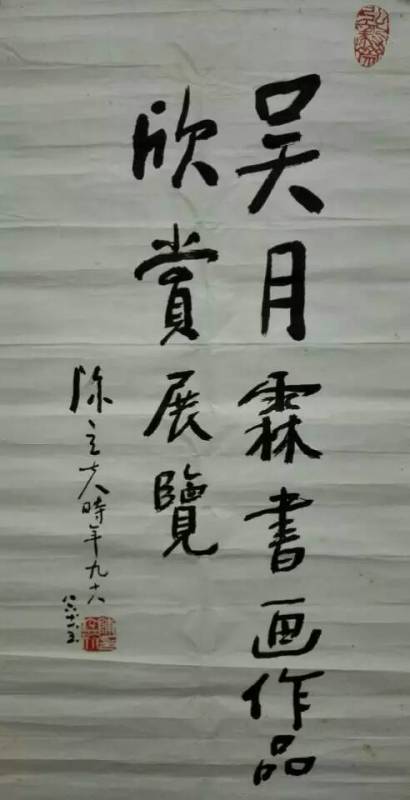 吴月霖書画作品
欣賞展覽
陳立夫時年九十八